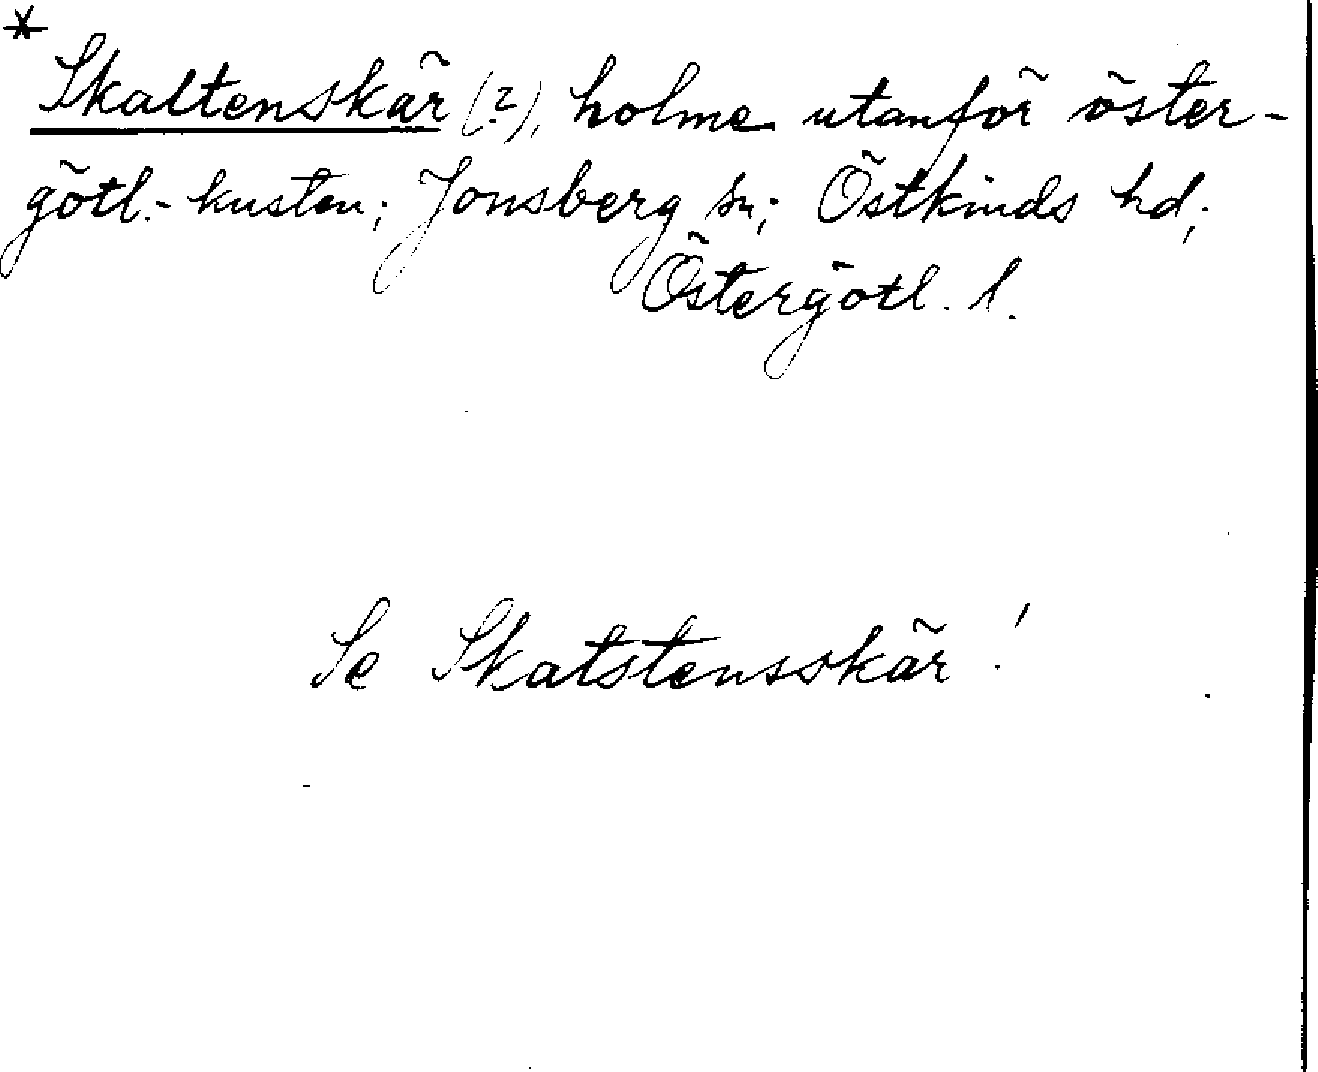 *
Skaltenskär (?), holme utanför öster-
götl.-kusten; Jonsberg sn; Östkinds hd;
Östergötl. l.
Se Skatstensskär !